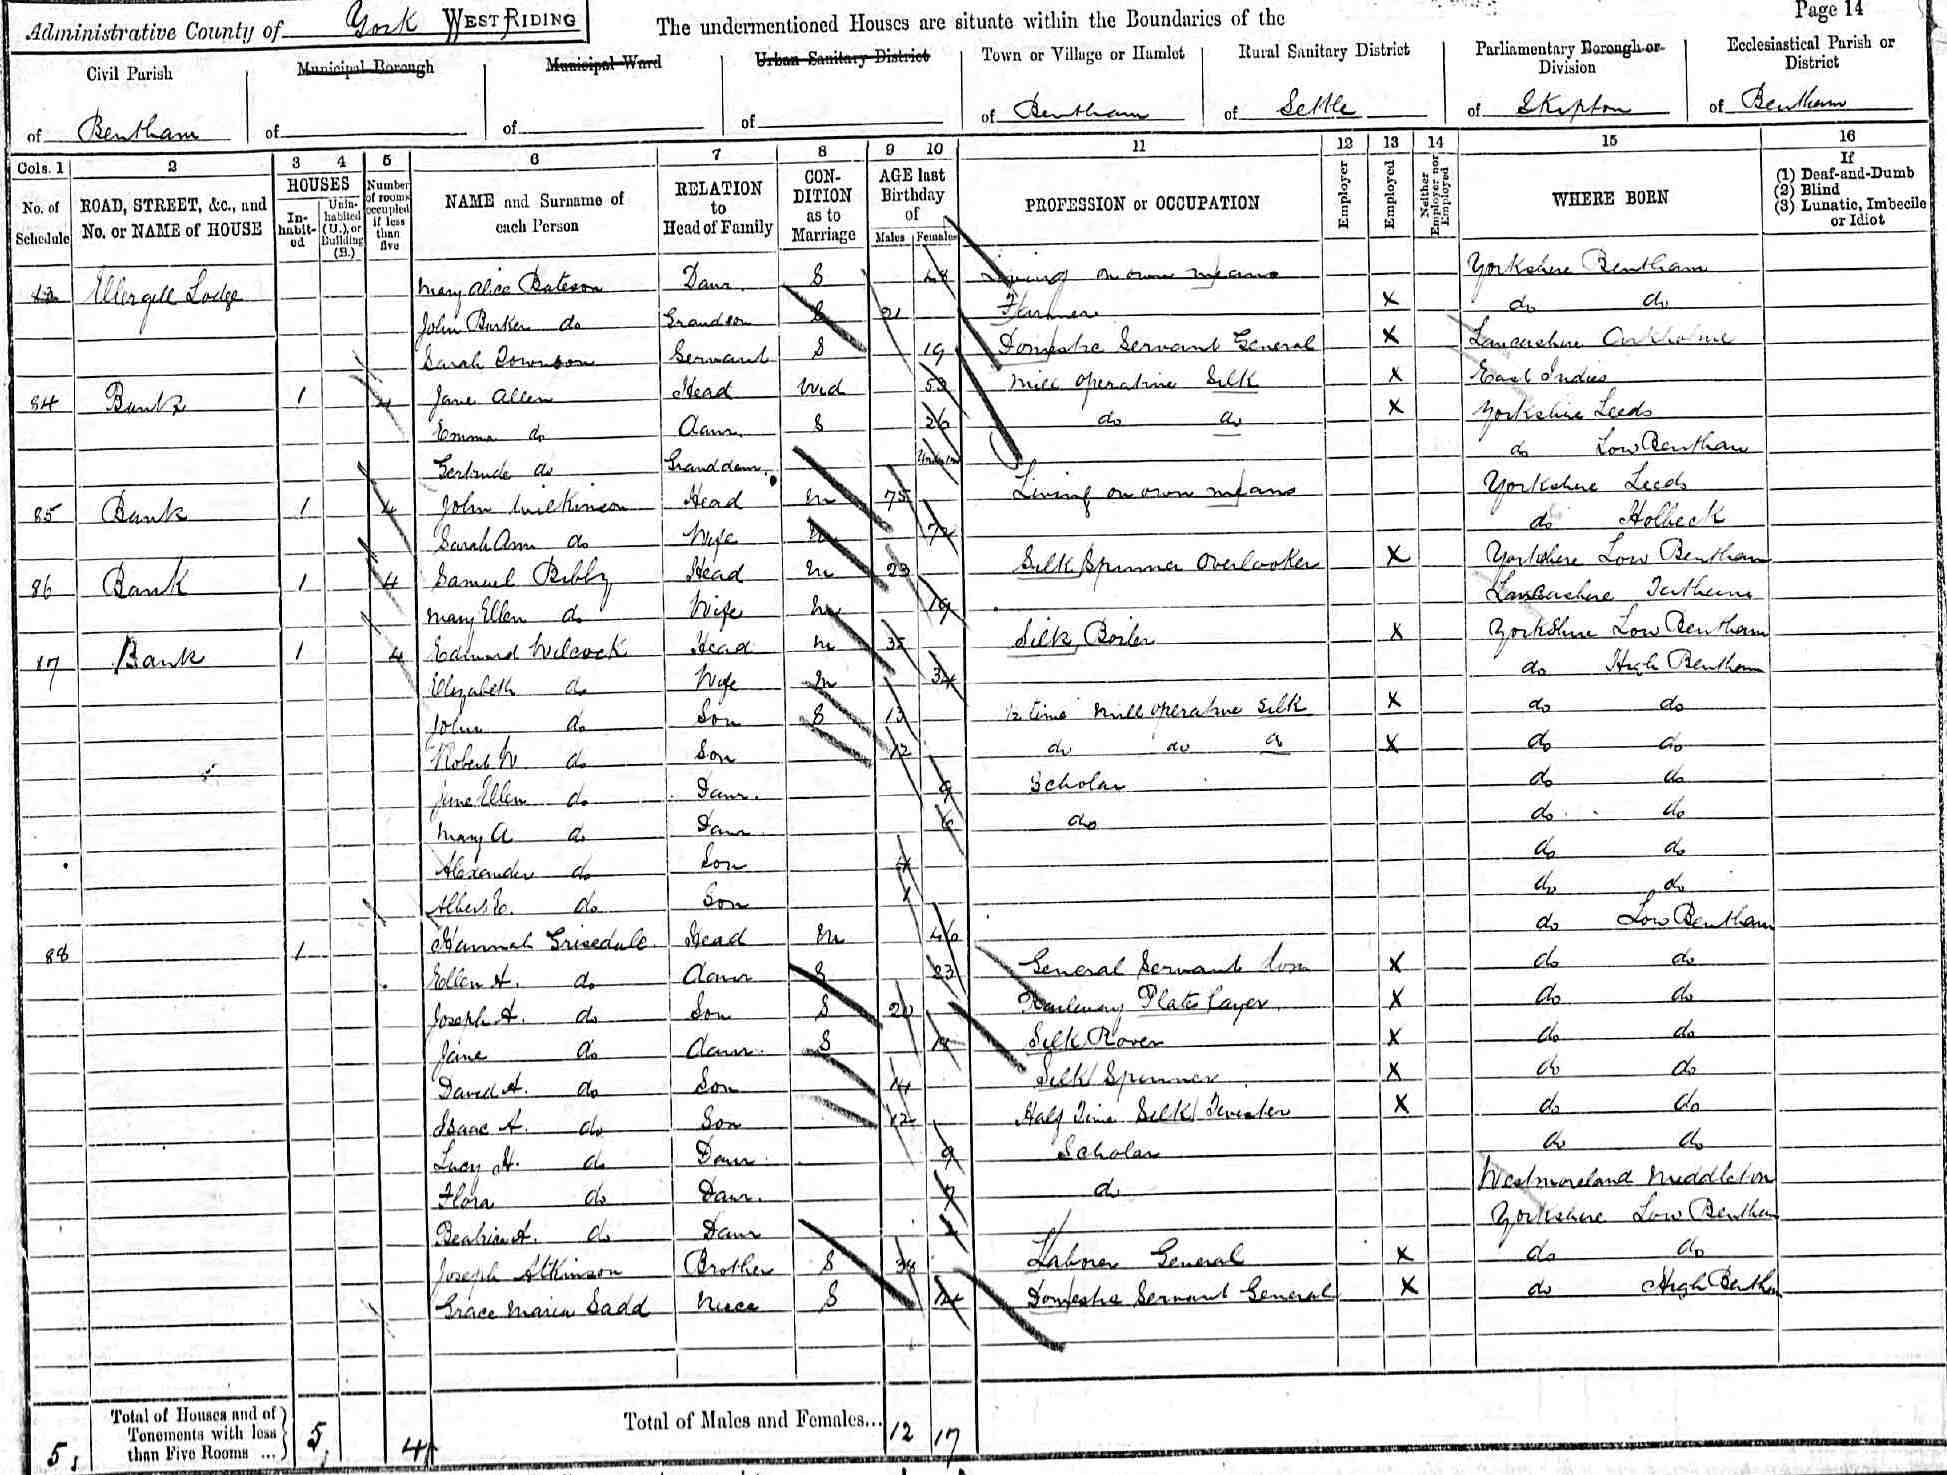 Page 14
Administrative County of York WEST RIDING The undermentioned Houses are situate within the Boundaries of the
Civil Parish Municipal Borough Municipal Ward Urban Sanitary District Town or Village or Hamlet Rural Sanitary District Parliamentary Borough or Division Ecclesiastical Parish or District
of Bentham of of of of Bentham of Settle of Skipton of Bentham
Cols. 1 2 3 4 5 6 7 8 9 10 11 12 13 14 15 16
No. of Schedule ROAD, STREET, &c., and No. or NAME of HOUSE HOUSES Inhabited Uninhabited (U.), or Building (B.) Number of rooms occupied if less than five NAME and Surname of each Person RELATION to Head of Family CONDITION as to Marriage AGE last Birthday of Males Females PROFESSION or OCCUPATION Employer Employed Neither Employer nor Employed WHERE BORN If (1) Deaf-and-Dumb (2) Blind (3) Lunatic, Imbecile or Idiot
Ellergill Lodge Mary Alice Bateson Daur. S Living on own means Yorkshire Bentham
John Burker do Grandson S 21 Farmer X do do
Sarah Townson Servant S 19 Domestic Servant General X Lancashire Arkholme
84 Bank 1 4 Jane Allen Head Wid 53 Mill operative Silk X East Indies
Emma do Daur. S 26 do do X Yorkshire Leeds
Gertrude do Granddaur. do Low Bentham
85 Bank 1 4 John Wilkinson Head M 75 Living on own means Yorkshire Leeds
Sarah Ann do Wife M 72 do Holbeck
86 Bank 1 4 Samuel Bibby Head M 23 Silk Spinner Overlooker X Yorkshire Low Bentham
Mary Ellen do Wife M 19 Lancashire Tatham
17 Bank 1 4 Edward Wilcock Head M 35 Silk Boiler X Yorkshire Low Bentham
Elizabeth do Wife M 34 do High Bentham
John do Son S 13 ½ time Mill operative Silk X do do
Robert W do Son 12 do do do X do do
Jane Ellen do Daur. 9 Scholar do do
Mary A do Daur 6 do do do
Alexander do Son 4 do do
Albert E. do Son 1 do do
88 1 Hannah Grisedale Head M 46 do Low Bentham
Ellen A. do Daur S 23 General Servant Dom X do do
Joseph A. do Son S 20 Railway Plate layer X do do
Jane do Daur. S Silk Rover X do do
David A. do Son 14 Silk Spinner X do do
Isaac A. do Son 12 Half Time Silk Twister X do do
Lucy A. do Daur 9 Scholar do do
Flora do Daur. 7 do Westmoreland Middleton
Beatrice A. do Daur 4 Yorkshire Low Bentham
Joseph Atkinson Brother S 38 Laborer General X do do
Grace Maria Sadd Niece S 14 Domestic Servant General X do High Bentham
5 Total of Houses and of Tenements with less than Five Rooms ... 5 4 Total of Males and Females... 12 17